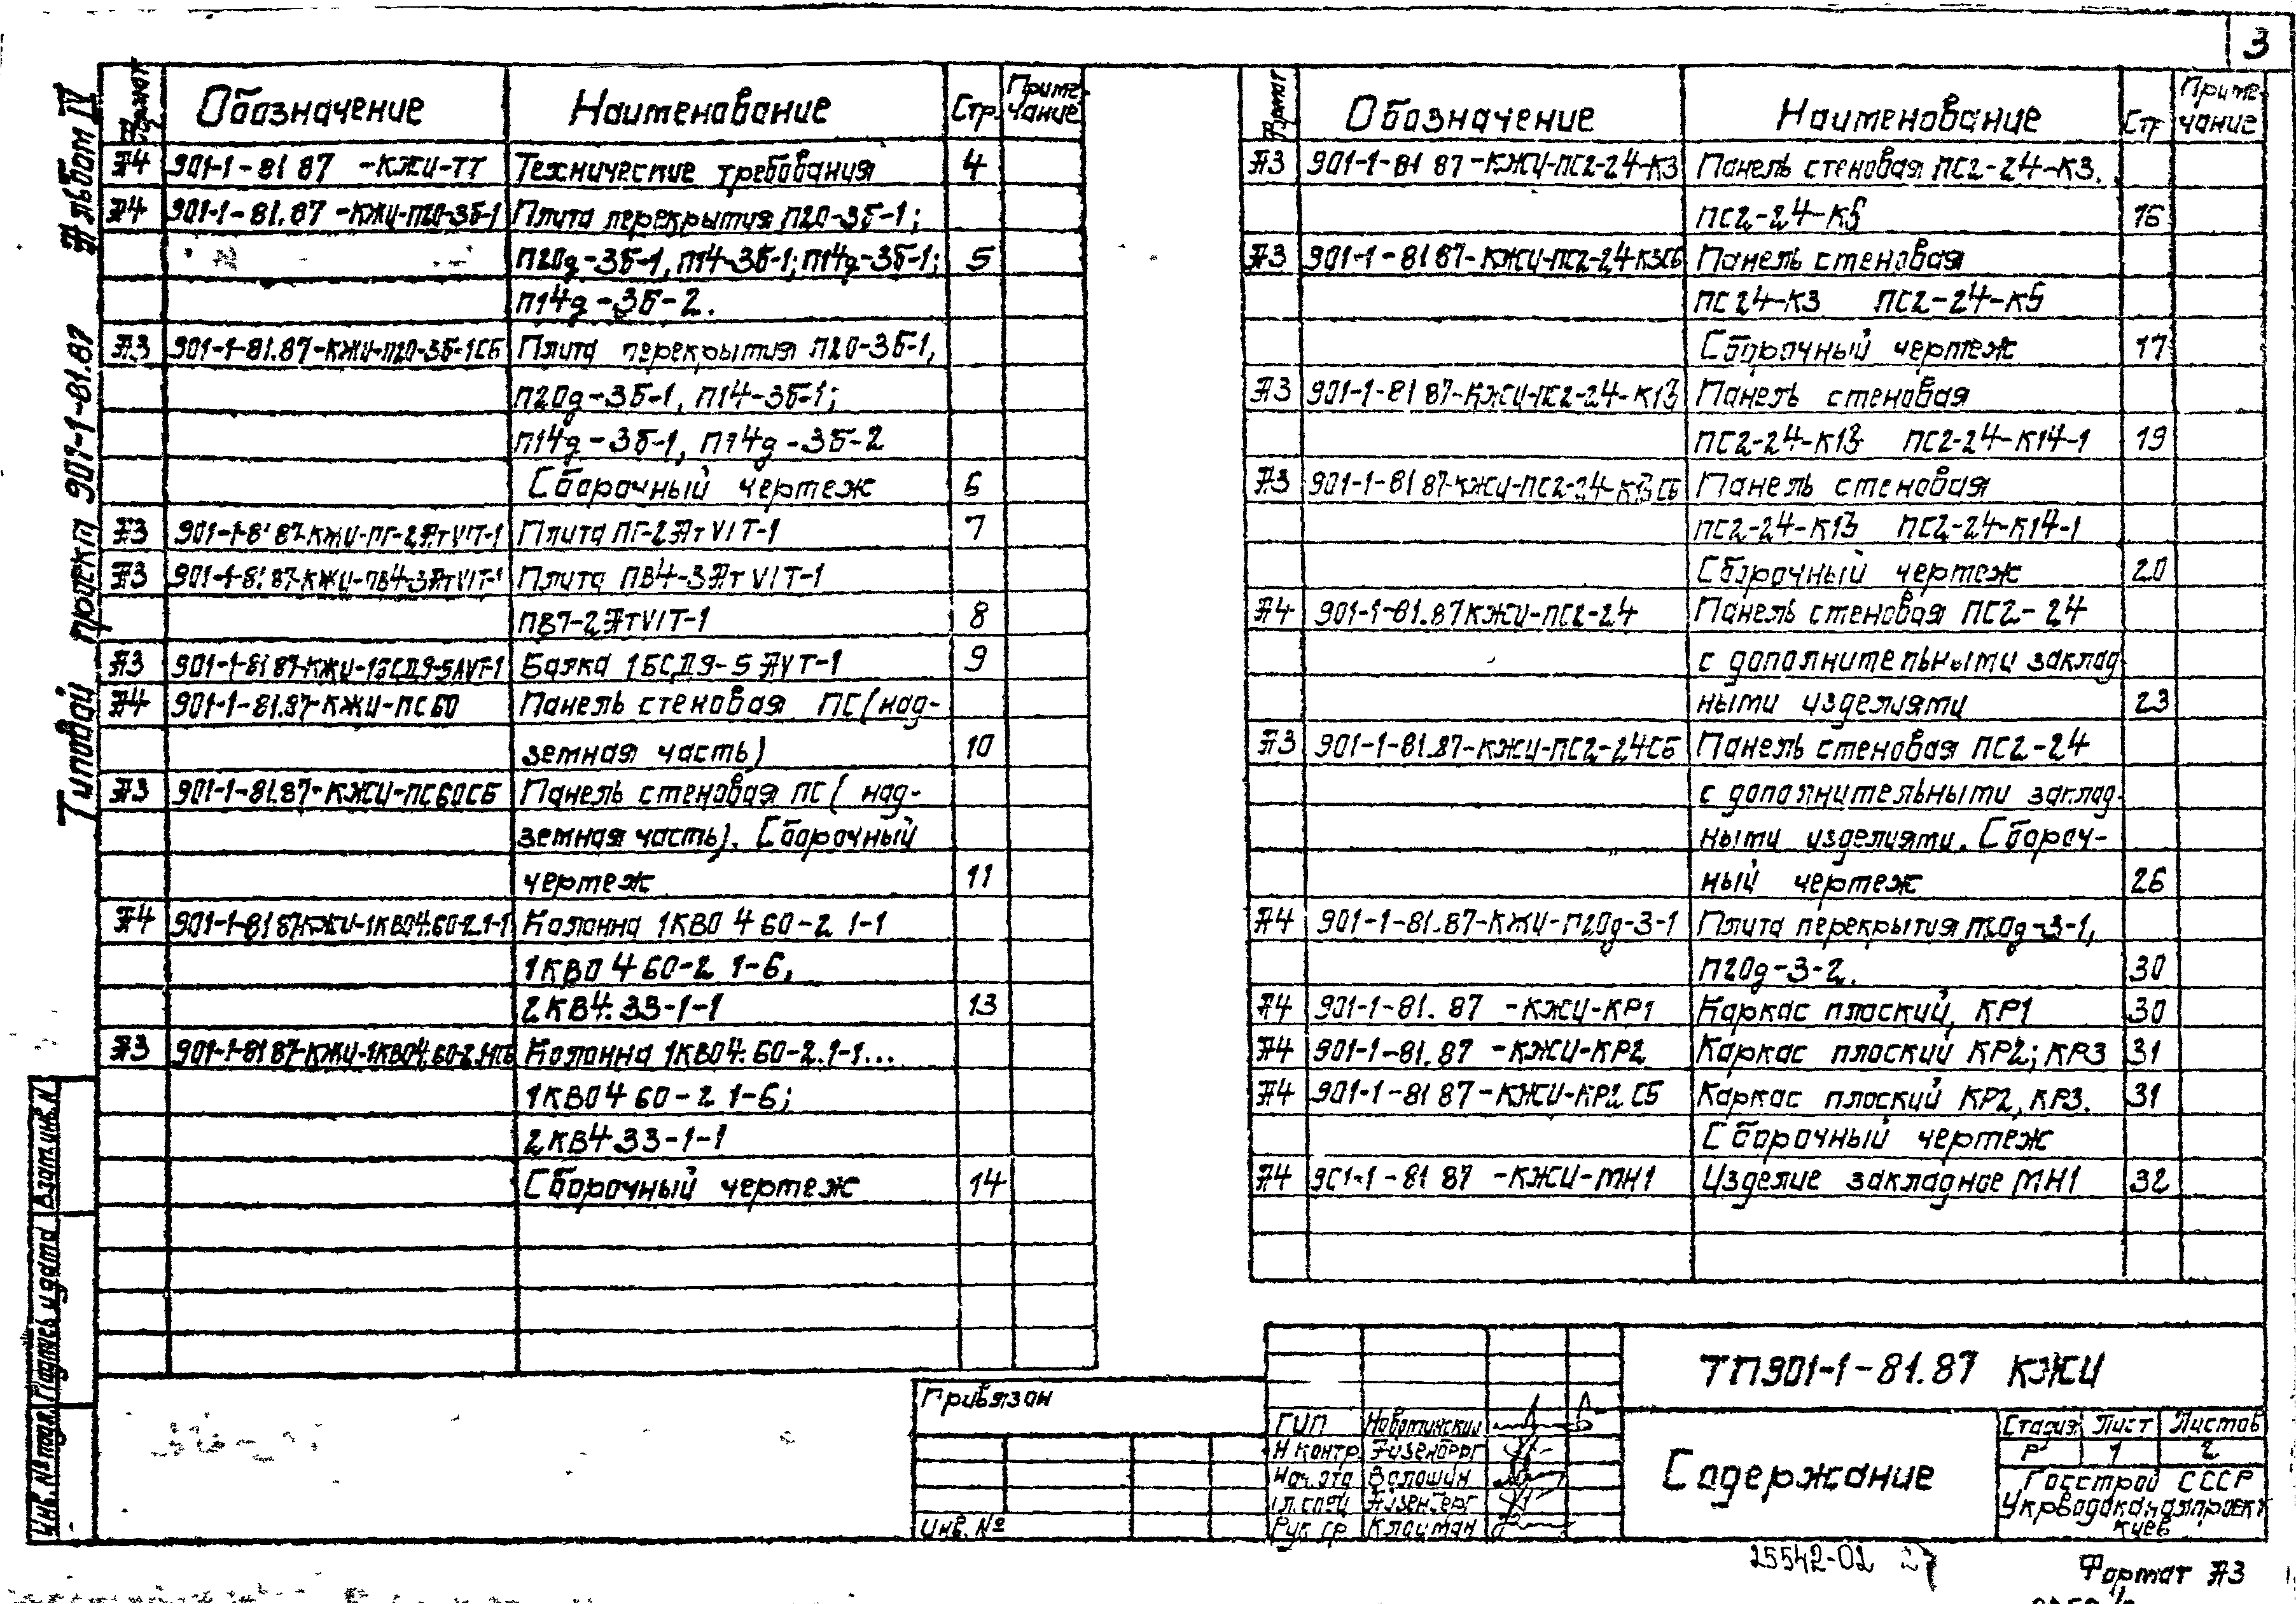 3
Альбом IV
Типовой проект 901-1-81.87
Формат Обозначение Наименование Стр. Приме-чание
А4 901-1-81 87 -КЖИ-ТТ Технические требования 4
А4 901-1-81.87 -КЖИ-П20-3Б-1 Плита перекрытия П20-3Б-1;
П20д-3Б-1, П14-3Б-1; П14д-3Б-1; 5
П14д-3Б-2.
А3 901-1-81.87-КЖИ-П20-3Б-1СБ Плита перекрытия П20-3Б-1,
П20д-3Б-1, П14-3Б-1;
П14д-3Б-1, П14д-3Б-2
Сборочный чертеж 6
А3 901-1-81 87-КЖИ-ПГ-2АтVIТ-1 Плита ПГ-2АтVIТ-1 7
А3 901-1-81.87-КЖИ-ПВ4-3АтVIТ-1 Плита ПВ4-3АтVIТ-1
ПВ7-2АтVIТ-1 8
А3 901-1-81 87-КЖИ-1БСД9-5АVТ-1 Балка 1БСД9-5АVТ-1 9
А4 901-1-81.87-КЖИ-ПС60 Панель стеновая ПС(над-
земная часть) 10
А3 901-1-81.87-КЖИ-ПС60СБ Панель стеновая ПС( над-
земная часть). Сборочный
чертеж 11
А4 901-1-81 87КЖИ-1КВ04.60-2.1-1 Колонна 1КВ0 4 60-2 1-1
1КВ0 4 60-2 1-6,
2КВ4.33-1-1 13
А3 901-1-81 87-КЖИ-1КВ04.60-2.1-1СБ Колонна 1КВ04.60-2.1-1...
1КВ04 60-2 1-6;
2КВ4 33-1-1
Сборочный чертеж 14
Формат Обозначение Наименование Стр Приме-чание
А3 901-1-81 87-КЖИ-ПС2-24-К3 Панель стеновая ПС2-24-К3.
ПС2-24-К5 16
А3 901-1-81 87-КЖИ-ПС2-24К3СБ Панель стеновая
ПС 24-К3 ПС2-24-К5
Сборочный чертеж 17
А3 901-1-81 87-КЖИ-ПС2-24-К13 Панель стеновая
ПС2-24-К13 ПС2-24-К14-1 19
А3 901-1-81 87-КЖИ-ПС2-24-К13СБ Панель стеновая
ПС2-24-К13 ПС2-24-К14-1
Сборочный чертеж 20
А4 901-1-81.87КЖИ-ПС2-24 Панель стеновая ПС2-24
с дополнительными заклад
ными изделиями 23
А3 901-1-81.87-КЖИ-ПС2-24СБ Панель стеновая ПС2-24
с дополнительными заклад-
ными изделиями. Сбороч-
ный чертеж 26
А4 901-1-81.87-КЖИ-П20д-3-1 Плита перекрытия П20д-3-1,
П20д-3-2. 30
А4 901-1-81. 87 -КЖИ-КР1 Каркас плоский, КР1 30
А4 901-1-81.87 -КЖИ-КР2 Каркас плоский КР2; КР3 31
А4 901-1-81 87 -КЖИ-КР2 СБ Каркас плоский КР2, КР3. 31
Сборочный чертеж
А4 901-1-81 87 -КЖИ-МН1 Изделие закладное МН1 32
Инв. № подл. Подпись и дата Взам. инв. N
Привязан
Инв. №
ГИП Новотинский
Н контр. Эйзенберг
Нач. отд Волошин
Гл. спец Эйзенберг
Рук гр Клоцман
ТП901-1-81.87 КЖИ
Содержание
Стадия Лист Листов
Р 1 2
Госстрой СССР
Укрводоканалпроект
Киев
25542-02
Формат А3